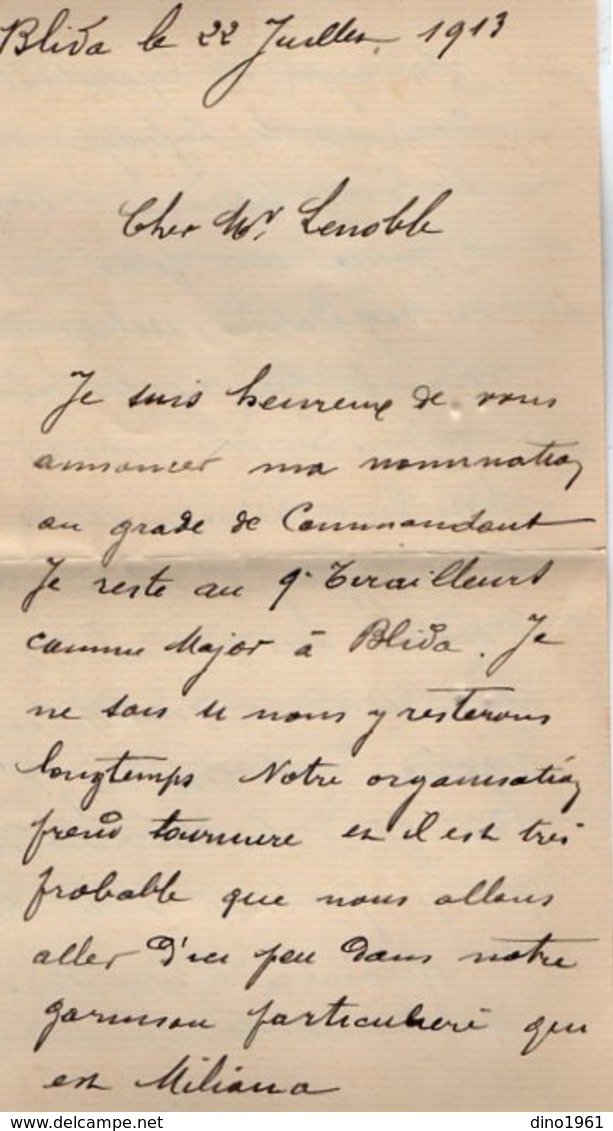 Blida le 22 Juillet 1913
Cher Mr. Lenoble
Je suis heureux de vous
annoncer ma nomination
au grade de Commandant
Je reste au 9e Tirailleurs
comme Major à Blida. Je
ne sais si nous y resterons
longtemps Notre organisation
prend tournure et il est très
probable que nous allons
aller d'ici peu dans notre
garnison particulière qui
est Miliana
dino1961